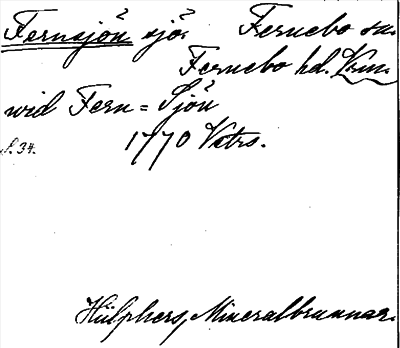 Fernsjön sjö. Fernebo sn.
Fernebo hd. Vrm.
wid Fern=Sjön
s. 34. 1770 Vetrs.
Hülphers, Mineralbrunnar.